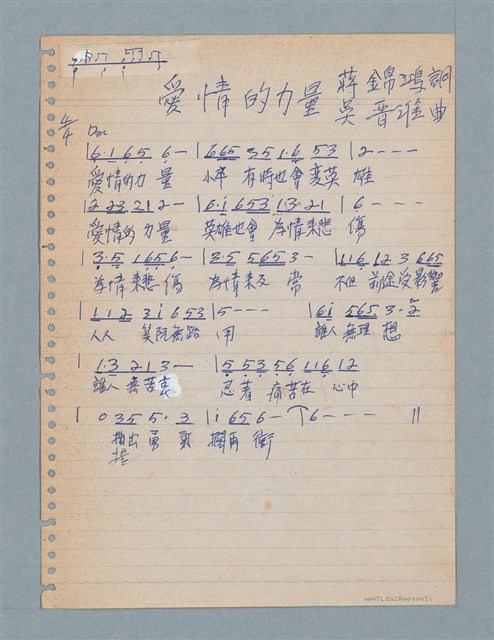 愛情的力量 蔣錦鴻詞
吳晋淮曲
4/4 Dm
|6·165 6-|665 35 1·6 53|2---
愛情的力量 小卒有時也會変英雄
|2 23 21 2-|6·i 653 1·3·21|6---
愛情的力量 英雄也會為情来悲傷
|3·5 1656-|3·5 565 3-|116 123 665
為情来悲傷 為情来反常 不但前途受影響
|112 3i653|5---|6i 565 3·2
人人笑阮無路用 誰人無理想
|1·3 213-|5 53 56 116 12
誰人無苦衷 忍着痛苦在心中
|035 5·3|i 656-|6---||
勇氣擱再衝
提
NMTL20220060051